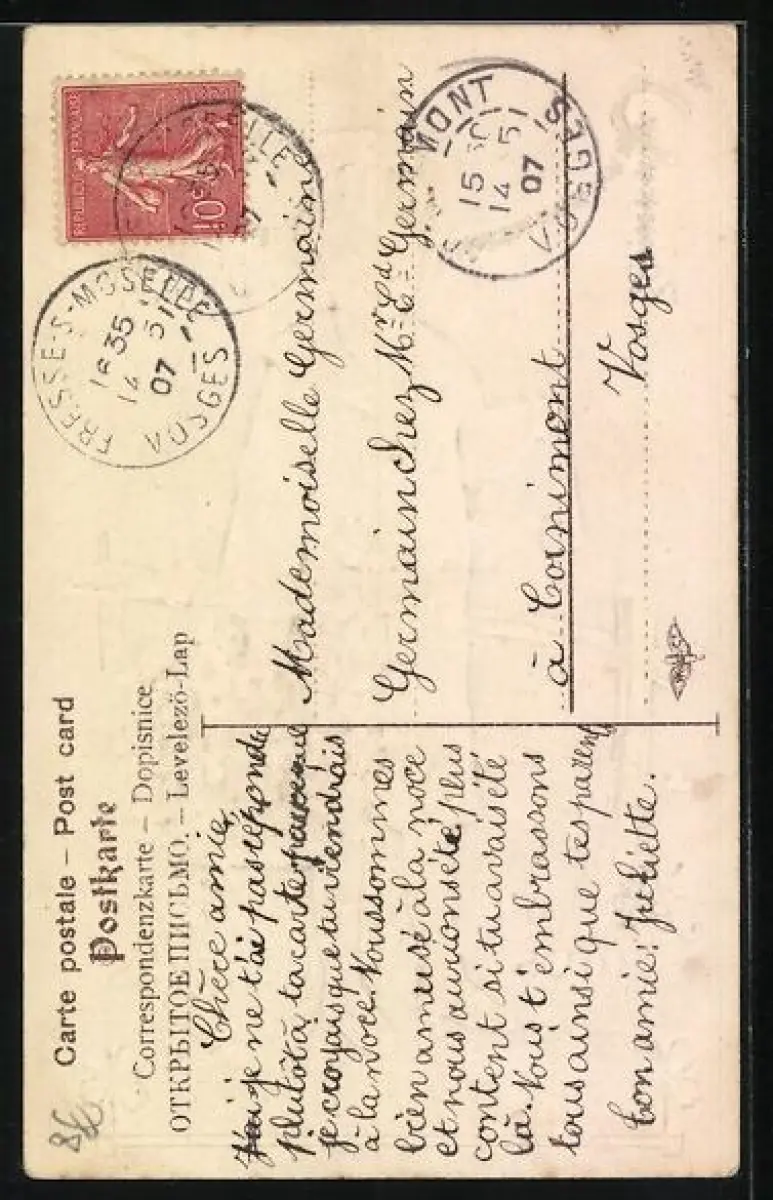 Carte postale – Post card
Postkarte
Correspondenzkarte – Dopisnice
ОТКРЫТОЕ ПИСЬМО. – Levelezö-Lap
Chère amie,
je ne t'ai pas répondu
plutôt à ta carte
je croyais que tu viendrais
à la noce. Nous sommes
bien amusé à la noce
et nous aurions été plus
content si tu avais été
là. Nous t'embrassons
tous ainsi que tes parents
ton amie: Juliette.
REPUBLIQUE FRANÇAISE
10c
FRESSE-S-MOSELLE
16 35
14 5
07
VOSGES
MONT
15 30
14 5
07
VOSGES
Mademoiselle Germaine
Germain chez Mr Ed Germain
à Cornimont
Vosges